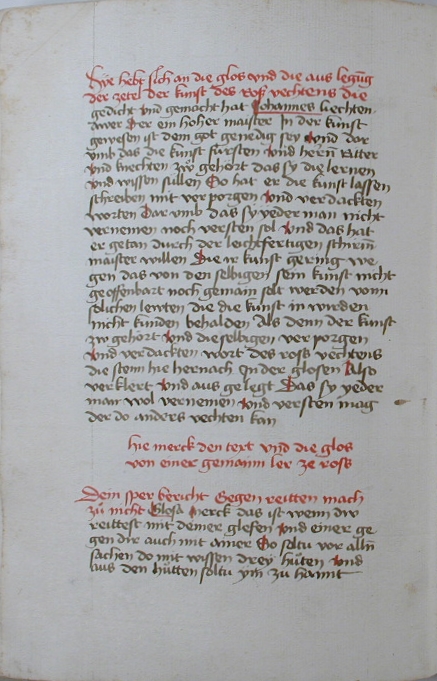 Hye hebt sich an die glos vnd die aus legu̅g
der zetel der kunst des Ross vechtens die
gedicht vnd gemacht hat Johannes liechten
awer Der ein hoher maister In der kunst
gewesen ist dem got genedig sey Vnd dar
vmb das die kunst fursten Vnd herñ Ritter
Vnd knechten zẘ gehort das sy die lernen
Vnd wissen sullen So hat er die kunst lassen
schreiben mit ver porgen Vnd verdackten
worten Dar vmb das sy yeder man nicht
vernemen noch versten sol Vnd das hat
er getan durch der leichfertigen schirm̅
maister willen Die ir kunst gering we
gen das von den selbigen sein kunst nicht
geoffenbart noch gemain solt werden vom
solichen lewten die die kunst in wirden
nicht kunden behalden Als denn der kunst
zw gehort Vnd die selbigen ver porgen
Vnd verdackten wort des ross vechtens
die stenn hie hernach In der glosen Also
verklert Vnd aus gelegt Das sy yeder
man wol vernemen Vnd versten mag
der do anders vechten kan
hie merck den text vnd die glos
von einer gemainn ler ze ross
Dein sper bericht Gegen reitten mach
zů nicht Glosa Merck das ist wenn dw
reittest mit deiner glefen Vnd einer ge
gen dir auch mit ainer So soltu vor alln̅
sachen do mit wissen drey hůten Vnd
aus den hůtten soltu ym zu hannt